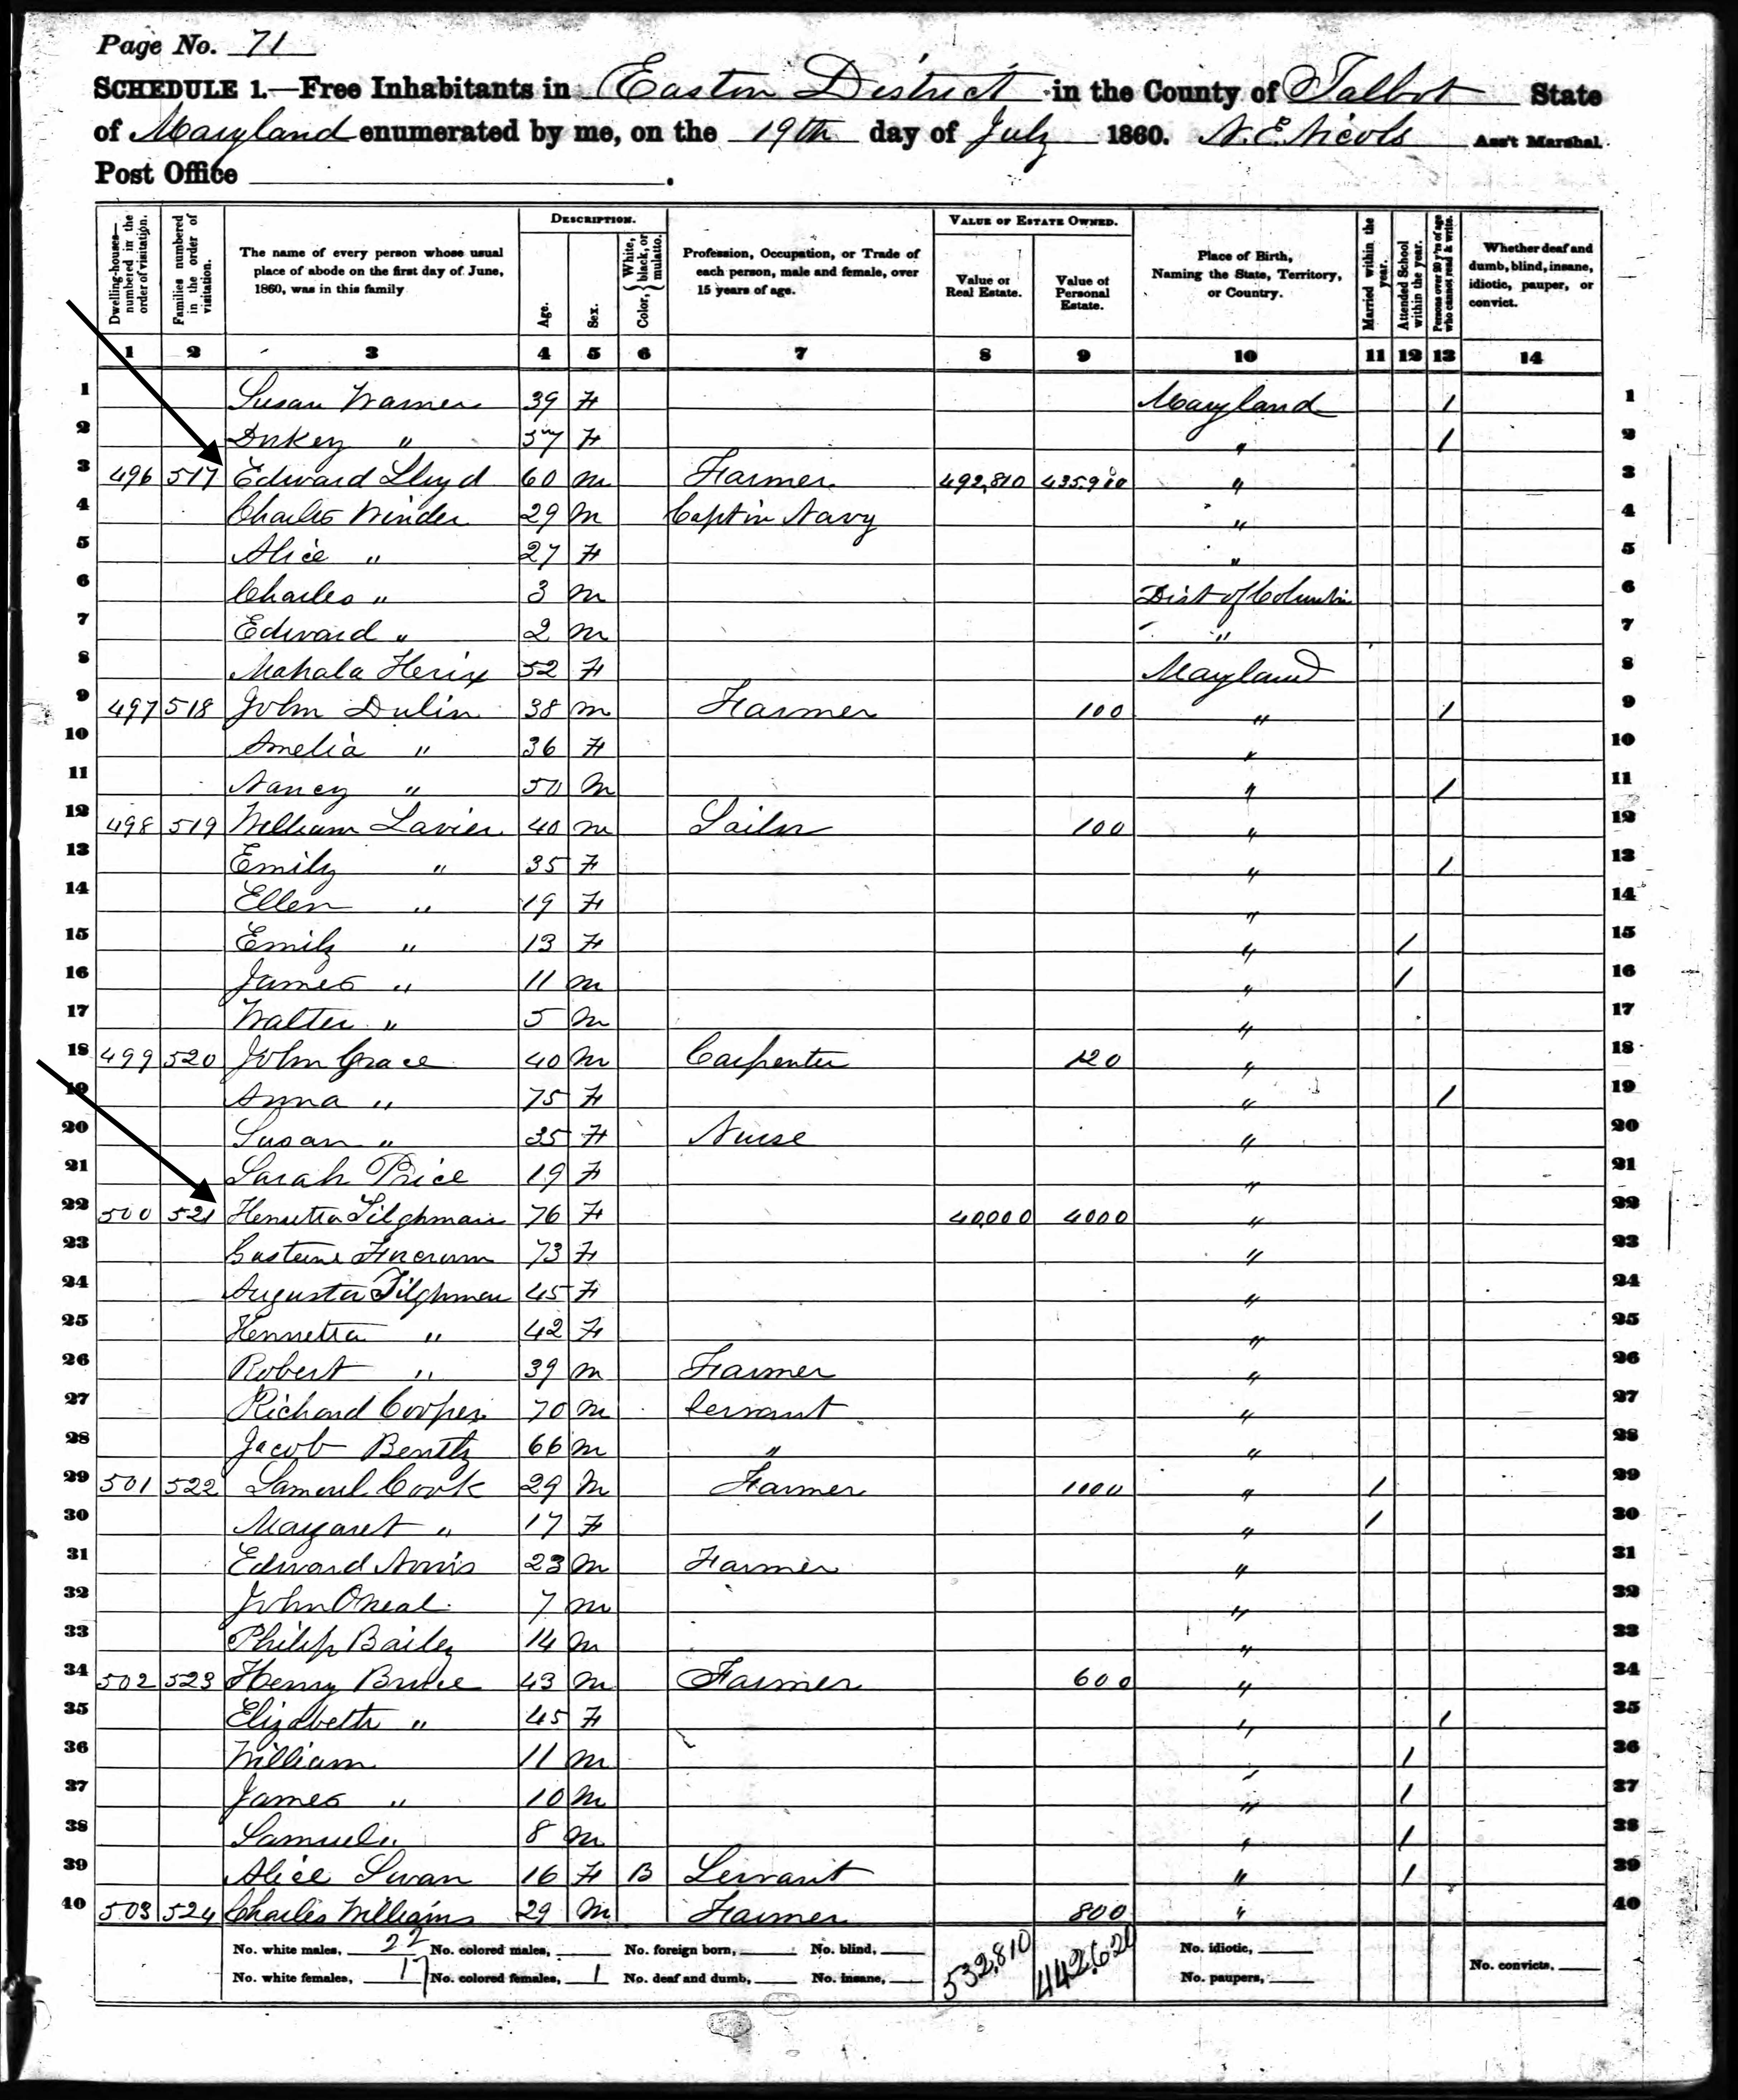 Page No. 71
SCHEDULE 1.—Free Inhabitants in Easton District in the County of Talbot State
of Maryland enumerated by me, on the 19th day of July 1860. N. E. Nicols Ass't Marshal.
Post Office .
Dwelling-houses—numbered in the order of visitation. Families numbered in the order of visitation. The name of every person whose usual place of abode on the first day of June, 1860, was in this family DESCRIPTION. Age. Sex. Color, White, black, or mulatto. Profession, Occupation, or Trade of each person, male and female, over 15 years of age. VALUE OF ESTATE OWNED. Value of Real Estate. Value of Personal Estate. Place of Birth, Naming the State, Territory, or Country. Married within the year. Attended School within the year. Persons over 20 y'rs of age who cannot read & write. Whether deaf and dumb, blind, insane, idiotic, pauper, or convict.
1 2 3 4 5 6 7 8 9 10 11 12 13 14
1 Susan Warner 39 F Maryland / 1
2 " 37 F " / 2
3 496 517 Edward Lloyd 60 m Farmer 492,810 " 3
4 Charles Winder 29 m Capt in Navy " 4
5 Alice " 27 F " 5
6 Charles " 3 m Dist of Columbia 6
7 Edward " 2 m " 7
8 Mahala 52 F Maryland 8
9 497 518 John Dulin 38 m Farmer 100 " / 9
10 Amelia " 36 F " 10
11 Nancy " 50 m " / 11
12 498 519 William 40 m Sailor 100 " 12
13 Emily " 35 F " / 13
14 Ellen " 19 F " 14
15 Emily " 13 F " / 15
16 James " 11 m " / 16
17 Walter " 5 m " 17
18 499 520 John Grace 40 m Carpenter 120 " 18
19 Anna " 75 F " / 19
20 Susan " 35 F Nurse " 20
21 Sarah Price 19 F " 21
22 500 521 Henretta Tilghman 76 F 40,000 4000 " 22
23 73 F " 23
24 Augusta Tilghman 45 F " 24
25 Henretta " 42 F " 25
26 Robert " 39 m Farmer " 26
27 Richard Cooper 70 m Servant " 27
28 Jacob 66 m " " 28
29 501 522 Samuel Cook 29 m Farmer 1000 " / 29
30 Margaret " 17 F " / 30
31 Edward 23 m Farmer " 31
32 John Oneal 7 m " 32
33 Philip Bailey 14 m " 33
34 502 523 Henry 43 m Farmer 600 " 34
35 Elizabeth " 45 F " / 35
36 William 11 m " / 36
37 James " 10 m " / 37
38 Samuel " 8 m " / 38
39 Alice Swan 16 F B Servant " / 39
40 503 524 Charles Williams 29 m Farmer 800 " 40
No. white males, 22 No. colored males, No. foreign born, No. blind, 532,810 442,620 No. idiotic,
No. white females, 17 No. colored females, 1 No. deaf and dumb, No. insane, No. paupers, No. convicts,